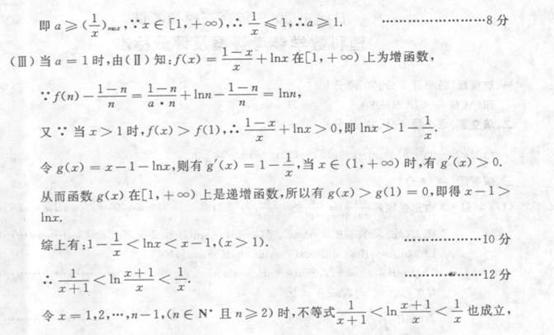 即 a ≥ (1/x)max, ∵x∈[1,+∞),∴ 1/x ≤1,∴a≥1. ………………8分
(Ⅲ)当 a=1时,由(Ⅱ)知:f(x)= (1-x)/x +lnx在[1,+∞)上为增函数,
∵f(n)- (1-n)/n = (1-n)/(a·n) +lnn- (1-n)/n =lnn,
又∵当x>1时,f(x)>f(1),∴ (1-x)/x +lnx>0,即lnx>1- 1/x.
令g(x)=x-1-lnx,则有g′(x)=1- 1/x,当x∈(1,+∞)时,有g′(x)>0.
从而函数g(x)在[1,+∞)上是递增函数,所以有g(x)>g(1)=0,即得x-1>
lnx.
综上有:1- 1/x <lnx<x-1,(x>1). ………………10分
∴ 1/(x+1) <ln (x+1)/x < 1/x. ………………12分
令x=1,2,…,n-1,(n∈N* 且n≥2)时,不等式 1/(x+1) <ln (x+1)/x < 1/x 也成立,